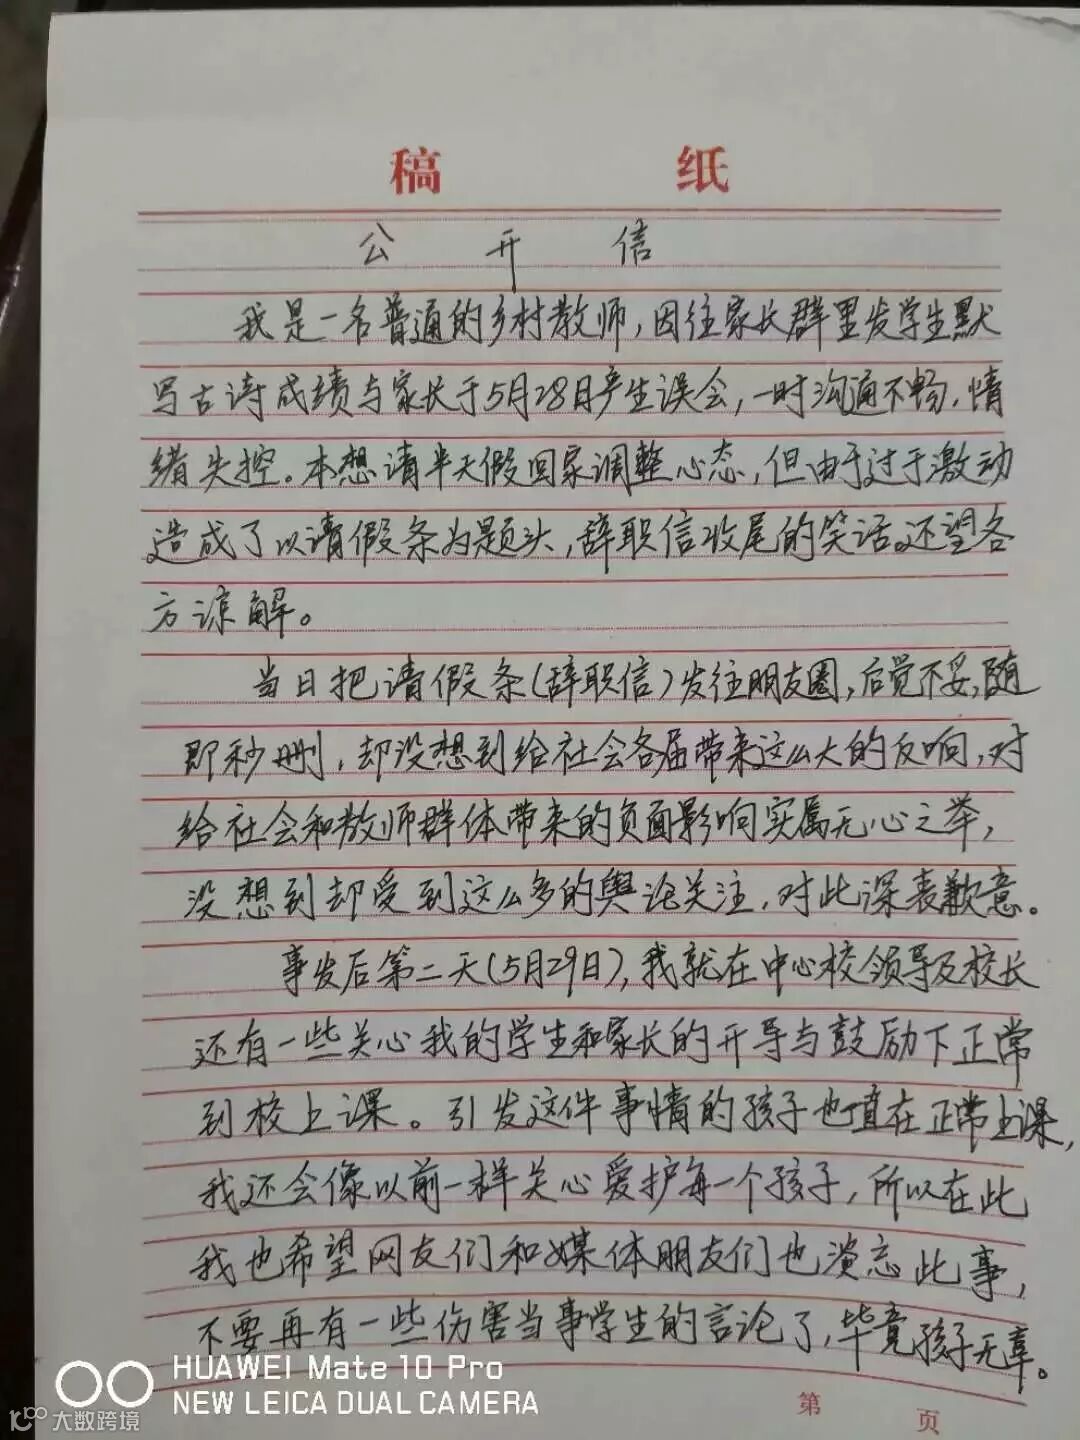 稿 纸
公开信
我是一名普通的乡村教师,因往家长群里发学生默
写古诗成绩与家长于5月28日产生误会,一时沟通不畅,情
绪失控。本想请半天假回家调整心态,但由于过于激动
造成了以请假条为题头,辞职信收尾的笑话。还望各
方谅解。
当日把请假条(辞职信)发往朋友圈,后觉不妥,随
即秒删,却没想到给社会各届带来这么大的反响,对
给社会和教师群体带来的负面影响实属无心之举,
没想到却受到这么多的舆论关注,对此深表歉意。
事发后第二天(5月29日),我就在中心校领导及校长
还有一些关心我的学生和家长的开导与鼓励下正常
到校上课。引发这件事情的孩子也一直在正常上课,
我还会像以前一样关心爱护每一个孩子,所以在此
我也希望网友们和媒体朋友们也淡忘此事,
不要再有一些伤害当事学生的言论了,毕竟孩子无辜。
HUAWEI Mate 10 Pro
NEW LEICA DUAL CAMERA
大数跨境
第 页